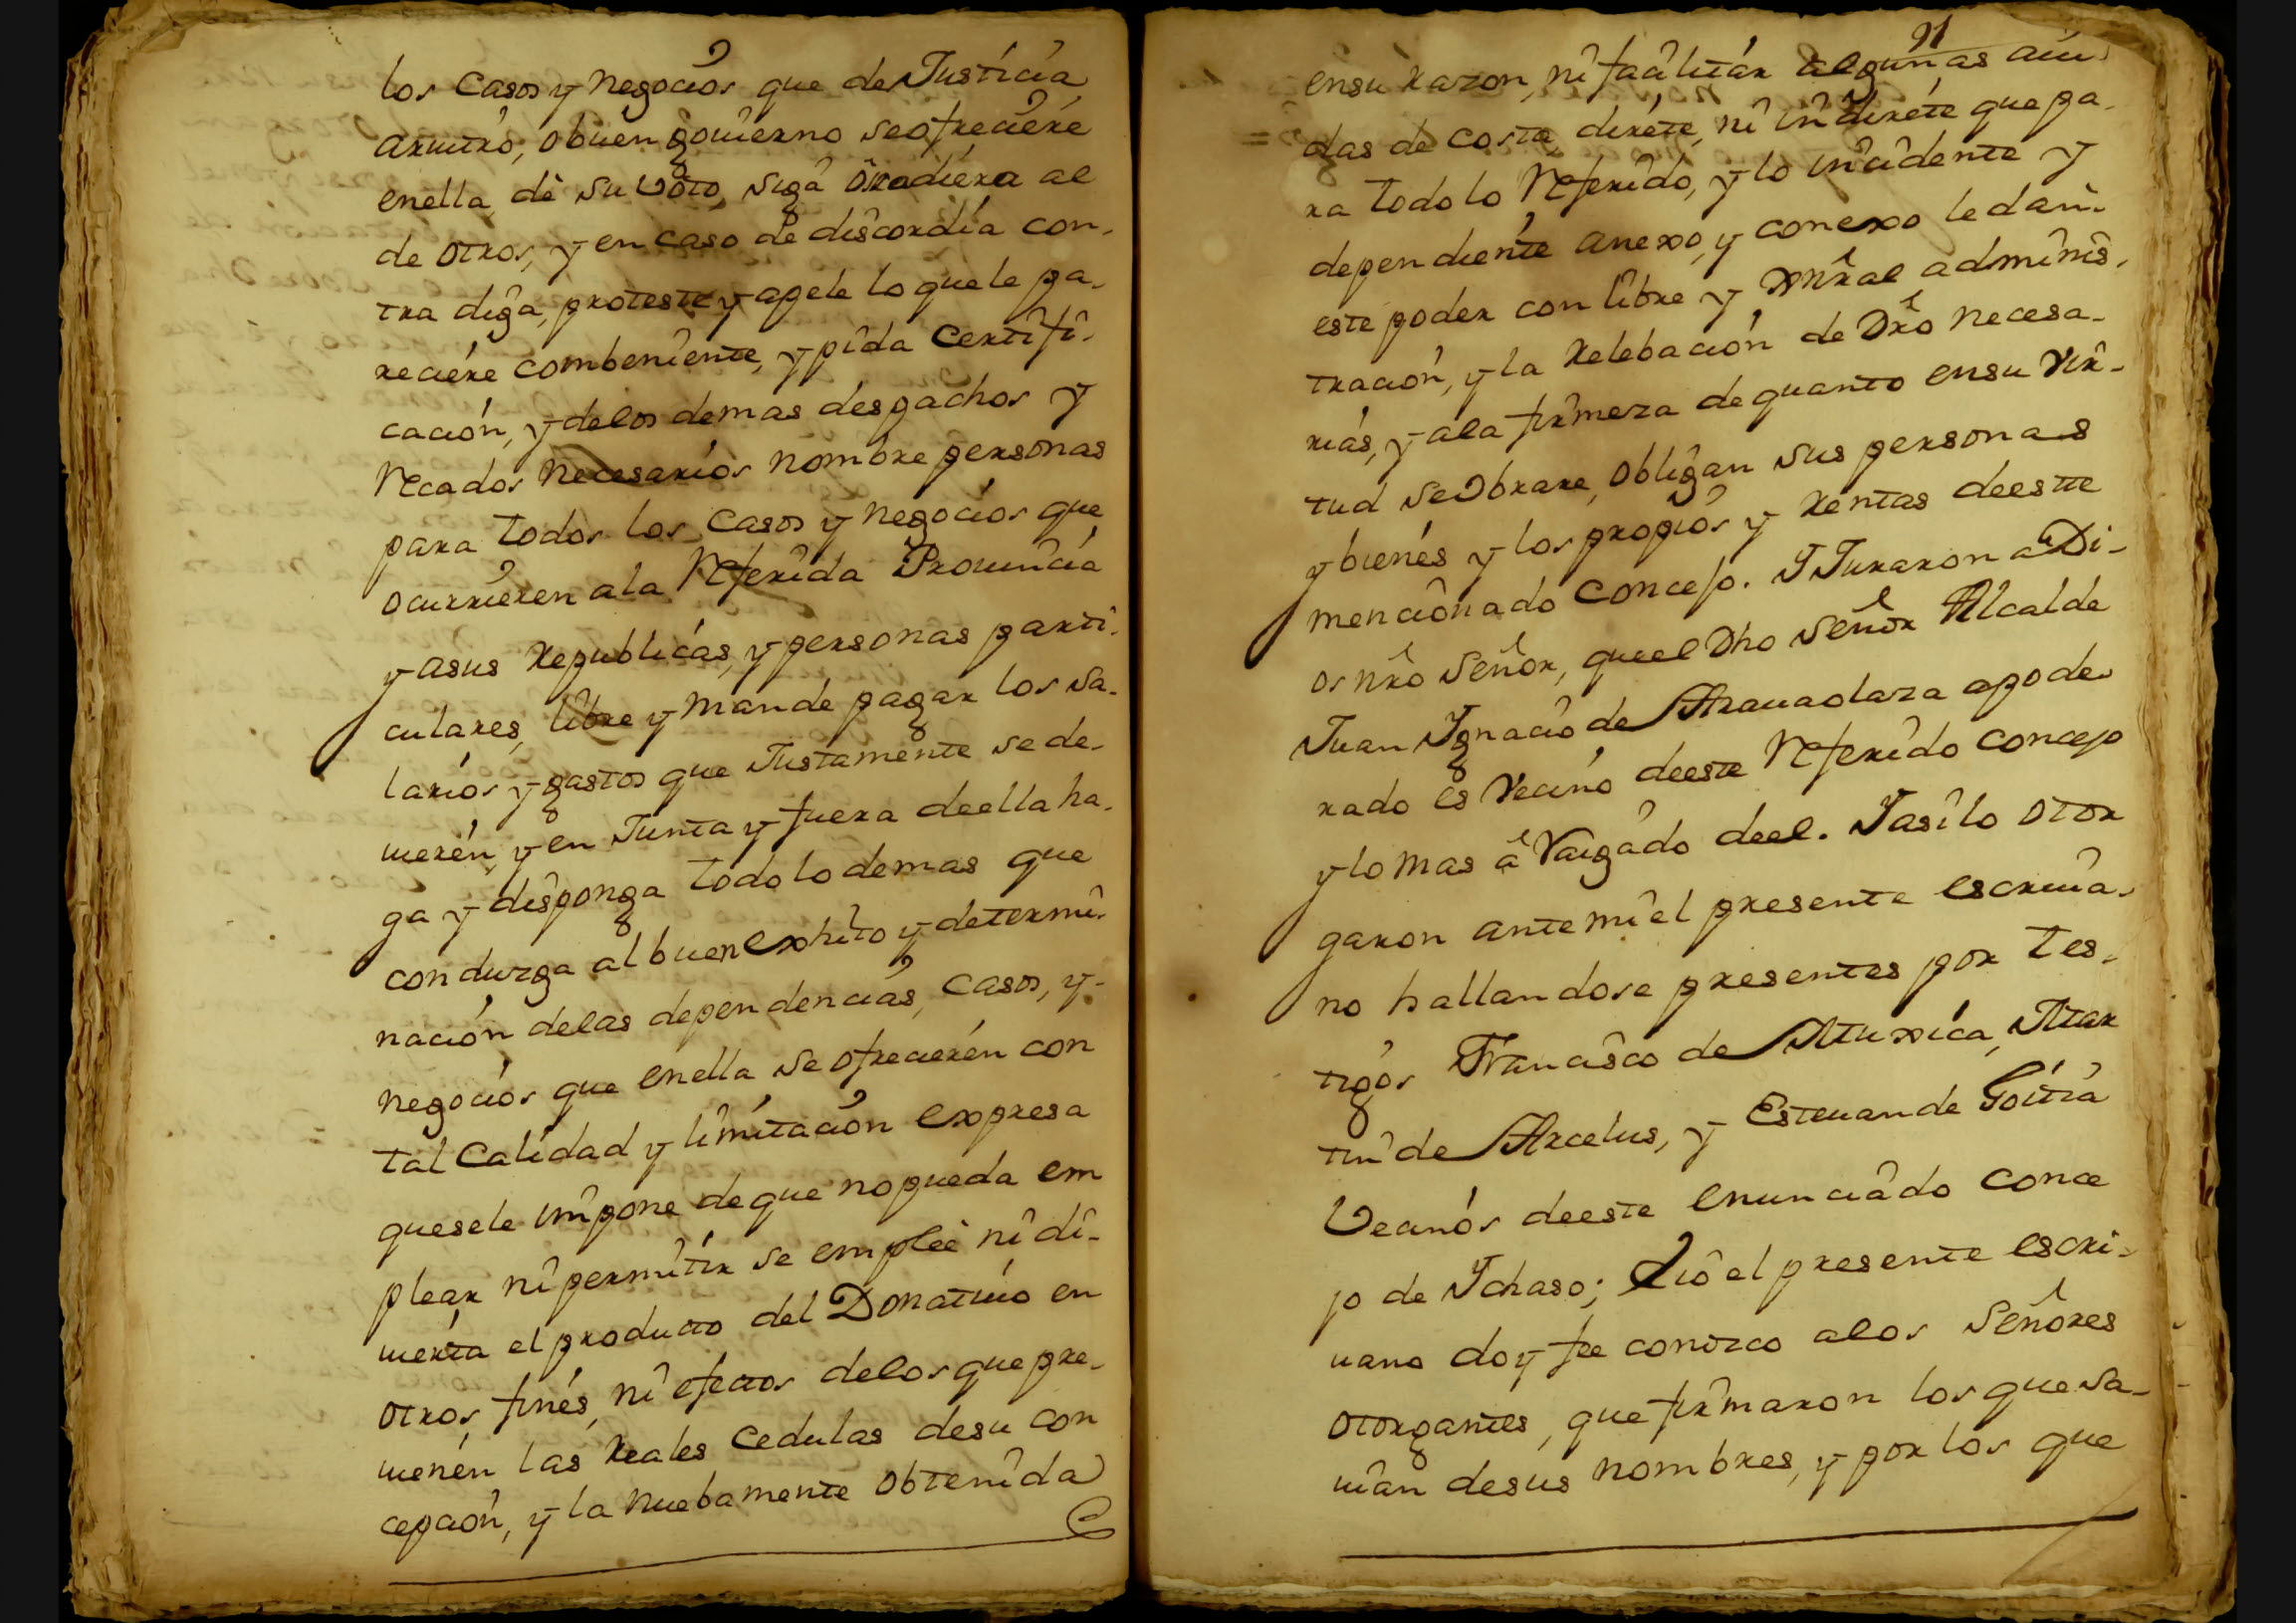 los Casos y negocios que de Justicia
arvitrio, o buen govierno se ofreciere
en ella, dè su Voto, siga ô se adiera al
de otros, y en caso de discordia con-
tra diga, proteste y apele lo que le pa-
reciere combeniente, y pida Certifi-
cación, y de los demas despachos y
Recados necesarios nombre personas
para todos los Casos y negocios que
ocurrieren a la Referida Provincia
y a sus Republicas, y personas parti-
culares, libre y mande pagar los Sa-
larios y gastos que Justamente se de-
vieren, y en Junta y fuera de ella ha-
ga y disponga todo lo demas que
conduzga al buen exhito y determi-
nación de las dependencias, Casos, y-
negocios que en ella se ofrecieren con
tal Calidad y limitación expresa
que se le impone de que no pueda em
plear ni permitir se empleè ni di-
vierta el producto del Donativo en
otros fines, ni efectos de los que pre-
vienen las Reales Cedulas de su con
cepción, y la nuebamente obtenida
91
en su razon, ni facilitar algunas aiu
das de costa, dirète, ni indirète que pa-
ra todo lo Referido, y lo incidente y
dependiente anexo, y conexo le dan
este poder con libre y Gnral adminis-
tración, y la Relebación de Dro necesa-
rias, y a la firmeza de quanto en su Vir-
tud se obrare, obligan sus personas
y bienes y los propios y Rentas de estte
mencionado Concejo. Y Juraron a Di-
os nro Señor, que el Dho Señor Alcalde
Juan Ignacio de Aravaolaza apode-
rado es Vecino de este Referido concejo
y lo mas â Raigado de el. Y asi lo otor
garon ante mi el presente escriva-
no hallandose presentes por tes-
tigos Francisco de Atuxica, Mar
tin de Arcelus, y Estevan de Goitia
Vecinos de este enunciado conce
jo de Ichaso; Y io el presente escri-
vano doy fee conozco a los Señores
otorgantes, que firmaron los que sa-
vian de sus nombres, y por los que